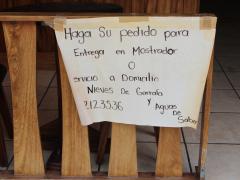 Haga Su pedido para
Entrega en Mostrador
O
servicio a Domicilio
Nieves De Garrafa
2123536 y Aguas De
Sabor